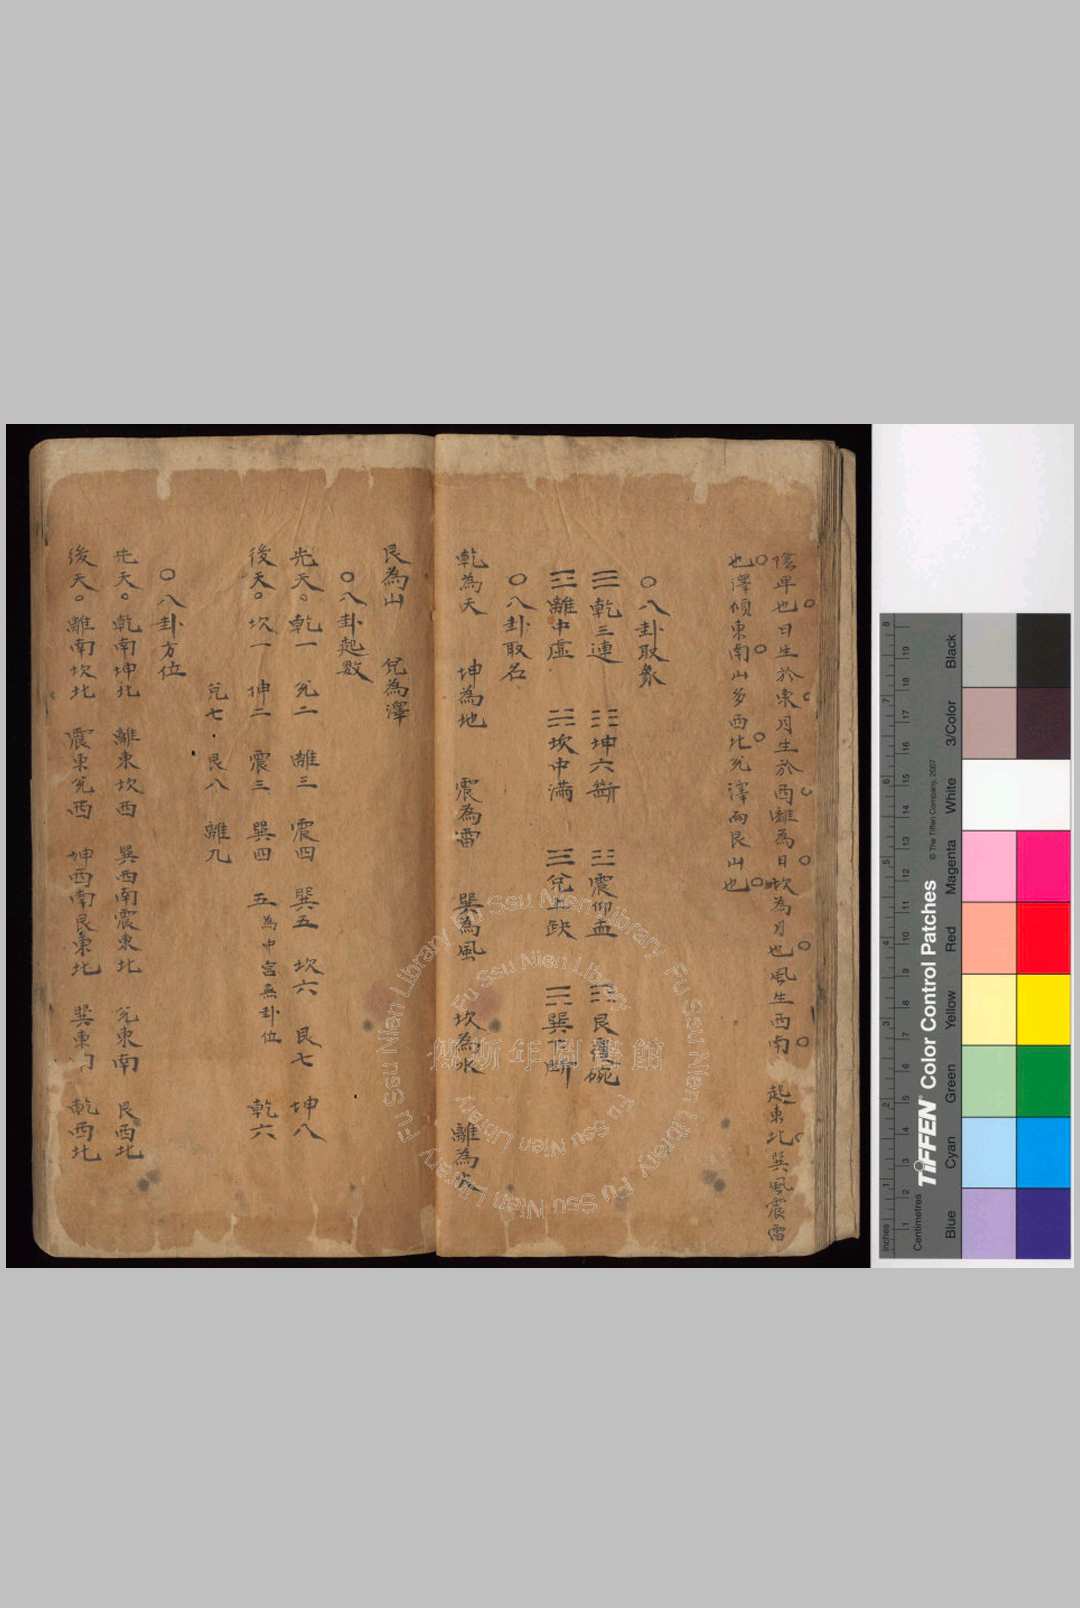 陰卑也日生於東月生於酉離為日坎為月也風生西南 起東北巽風震雷
也澤傾東南山多西北兌澤而艮山也
○八卦取象
☰乾三連 ☷坤六斷 ☳震仰盂 ☶艮覆碗
☲離中虛 ☵坎中滿 ☱兌上缺 ☴巽下斷
○八卦取名
乾為天 坤為地 震為雷 巽為風 坎為水 離為火
艮為山 兌為澤
○八卦起數
先天。乾一 兌二 離三 震四 巽五 坎六 艮七 坤八
後天。坎一 坤二 震三 巽四 五為中宮無卦位 乾六
兌七 艮八 離九
○八卦方位
先天。乾南坤北 離東坎西 巽西南震東北 兌東南 艮西北
後天。離南坎北 震東兌西 坤西南艮東北 巽東 乾西北
傅斯年圖書館
Fu Ssu Nien Library
Inches
Centimetres
TIFFEN® Color Control Patches
© The Tiffen Company, 2007
Blue
Cyan
Green
Yellow
Red
Magenta
White
3/Color
Black